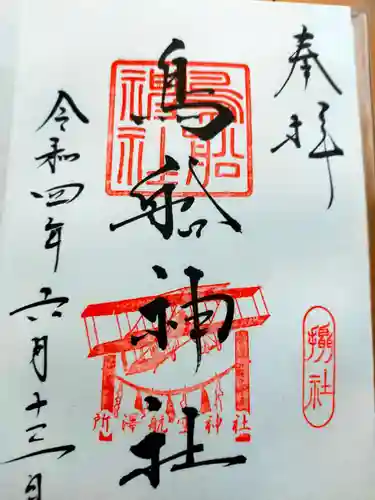 奉拝
鳥船神社
鳥船神社
【所澤航空神社】
摂社
令和四年六月十三日